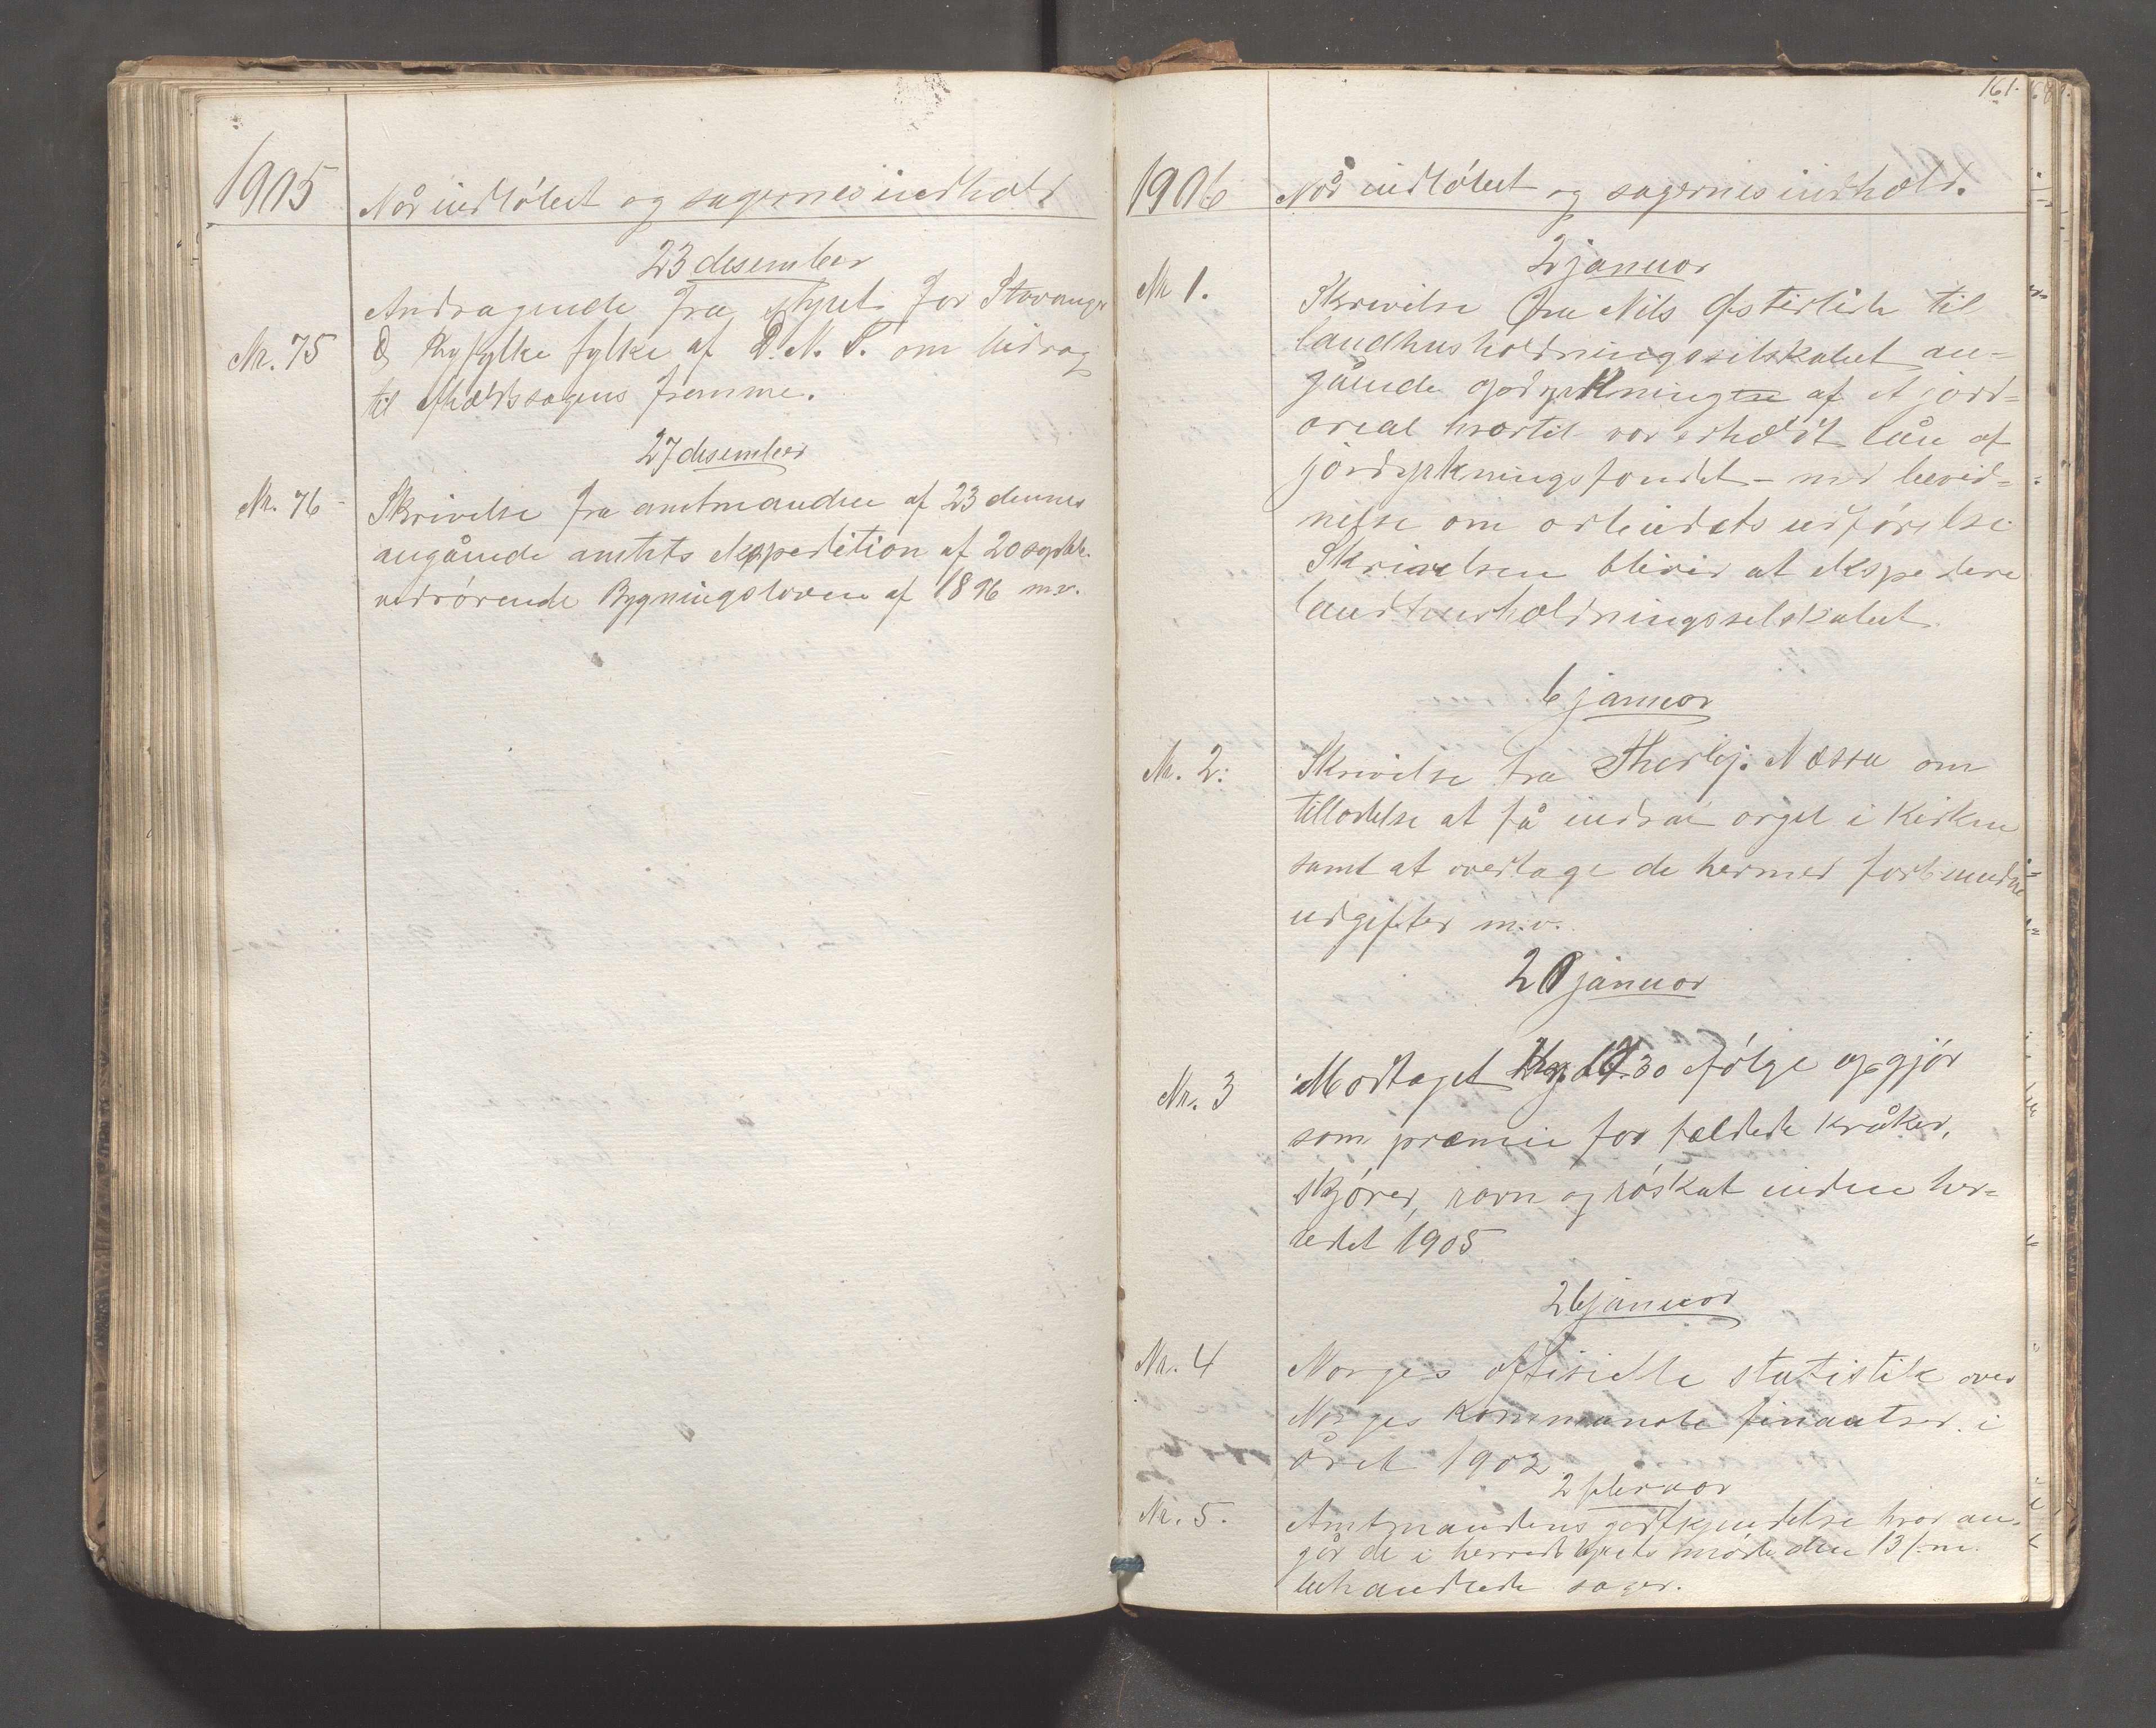 1905
Når indløbet og sagernes indhold
23 desember
Andragende fra styret for Stavanger
Nr. 75
& Ryfylke fylke af D. N. T. om bidrag
til afholdssagens fremme.
27 desember
Nr. 76
Skrivelse fra amtmanden af 23 dennes
angående amtets ekspedition af 20 septbr.
vedrørende Bygningsloven af 1896 m.v.
161.
1906
Når indløbet og sagernes indhold.
2 januar
Nr 1.
Skrivelse fra Nils Østerlide til
landhusholdningsselskabet an=
gående opdyrkningen af et jord=
areal hvortil var erholdt lån af
jorddyrkningsfondet – med bevid=
nelse om arbeidets udførelse.
Skrivelsen blives at ekspedere
landhusholdningsselskabet.
6 januar
Nr. 2.
Skrivelse fra Thorbj. Næssa om
tilladelse at få indsat orgel i kirken
samt at overtage de hermed forbundne
udgifter m.v.
20 januar
Nr. 3
Modtaget 17.30 følge opgjør
som præmie for fældede kråker,
skjører, ravn og røskat inden her=
redet 1905
26 januar
Nr. 4
Norges offisielle statistik over
Norges kommunale finantser i
året 1902
2 februar
Nr. 5.
Amtmandens godkjendelse hvad an=
går de i herredstyrets møde den 13/. m.
behandlede sager.